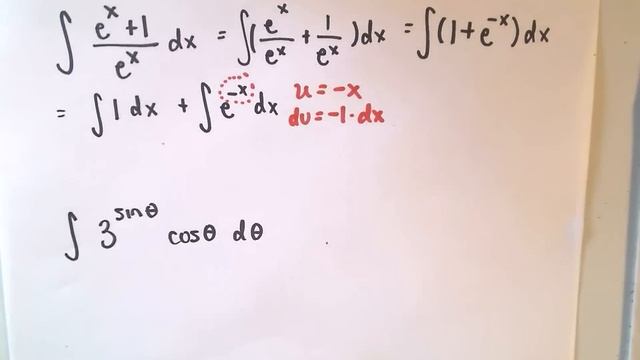 ∫ (e^x + 1)/e^x dx = ∫(e^x/e^x + 1/e^x)dx = ∫(1 + e^-x) dx
= ∫ 1 dx + ∫ e^-x dx u = -x
du = -1 · dx
∫ 3^sinθ cosθ dθ